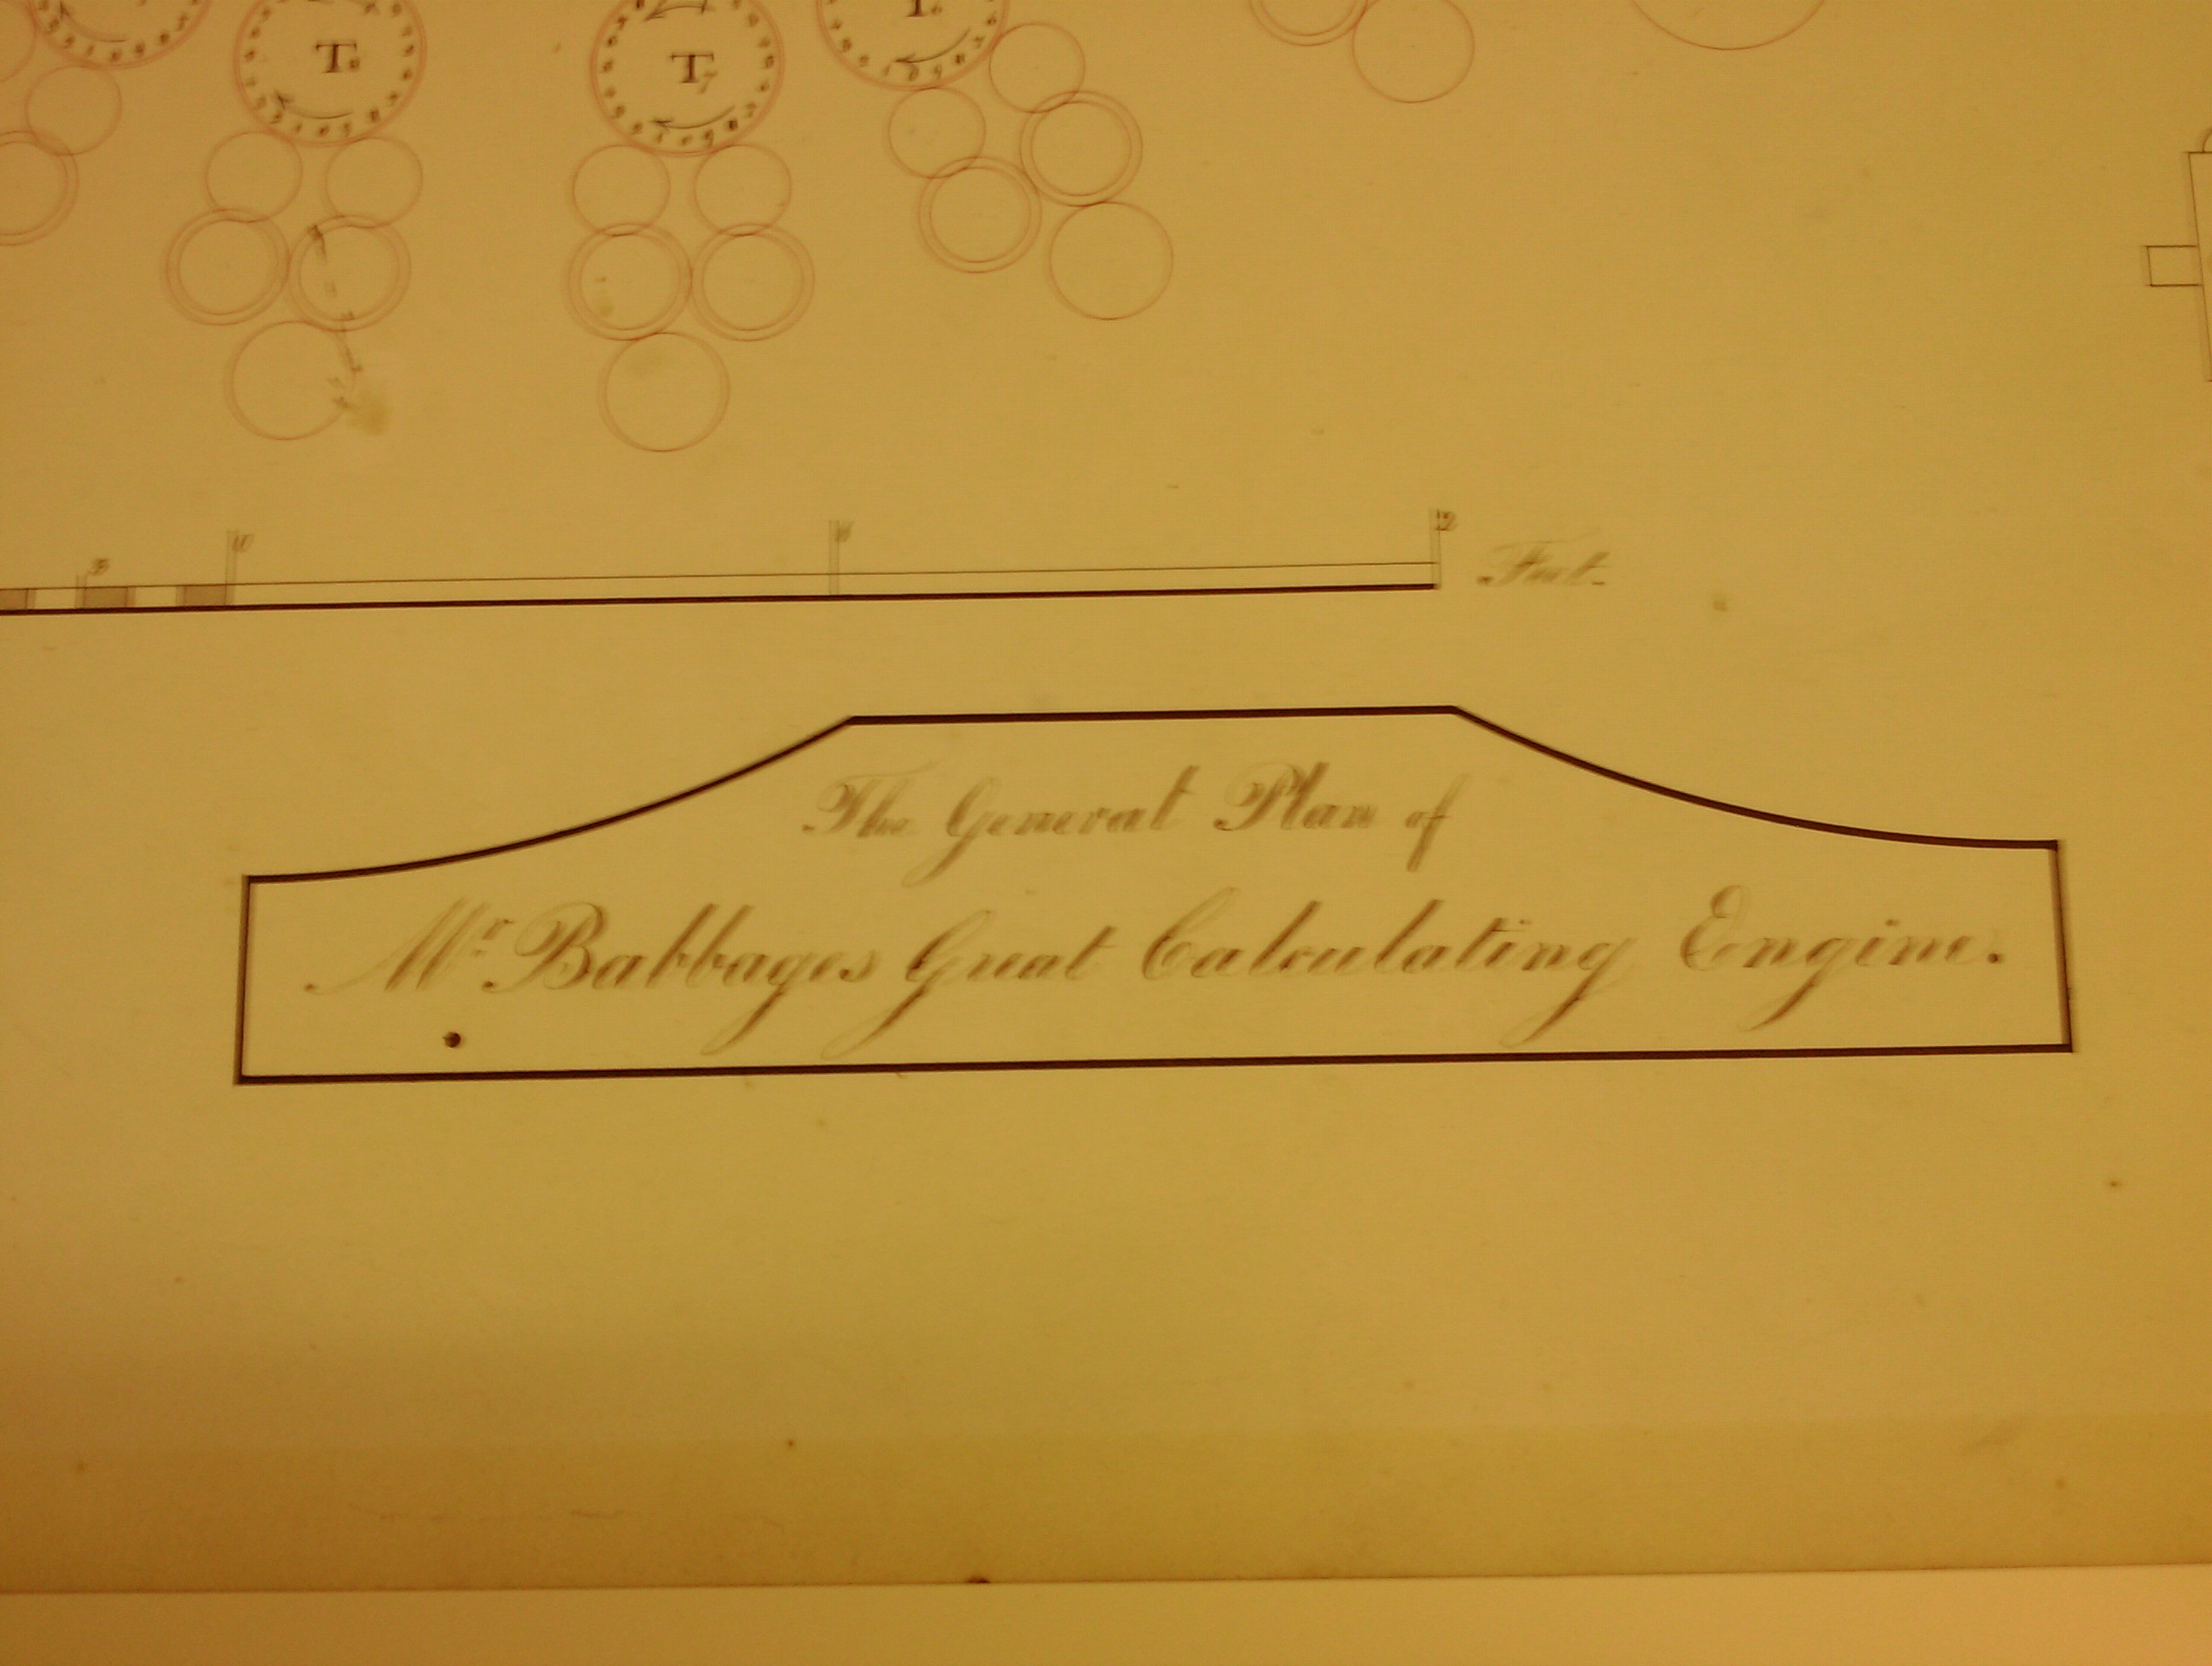 T₈ T₇ T₆
10 11 12 Feet.
The General Plan of
Mr. Babbages Great Calculating Engine.